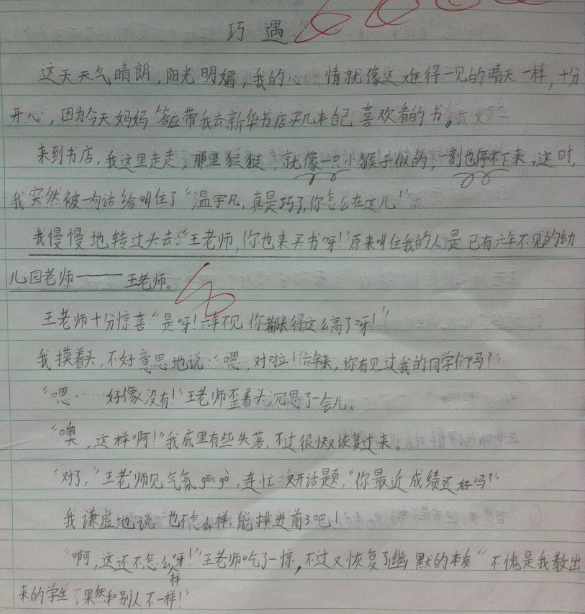 巧遇
这天天气晴朗，阳光明媚，我的心情就像这难得一见的晴天一样，十分
开心，因为今天妈妈答应带我去新华书店买几本自己喜欢看的书。
来到书店，我这里走走，那里逛逛，就像一只小猴子似的，一刻也停不下来，这时，
我突然被一句话给叫住了“温宇凡，真是巧了，你怎么在这儿！”
我慢慢地转过头去：“王老师，你也来买书呀！”原来叫住我的人是已有六年不见的幼
儿园老师——王老师。
王老师十分惊喜“是呀！六年不见你都长得这么高了呀！”
我摸着头，不好意思地说：“嗯，对啦！六年来，你有见过我的同学们吗？”
“嗯…好像没有！”王老师歪着头沉思了一会儿。
“噢，这样啊！”我底里有些失落，不过很快又恢复过来。
“对了，”王老师见气氛gān gà，连忙岔开话题，“你最近成绩还好吗？”
我谦虚地说“也不怎么样，能排进前3吧！”
“啊，这还不怎么样呀！”王老师吃了一惊，不过又恢复了幽默的本质“不愧是我教出
来的学生，果然和别人不一样！”